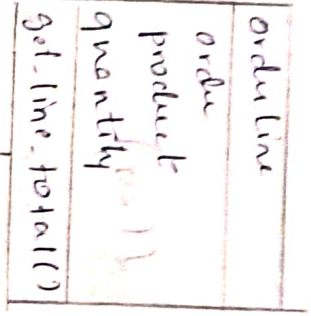 orduline
ordu
product
quantity
get-line-total()